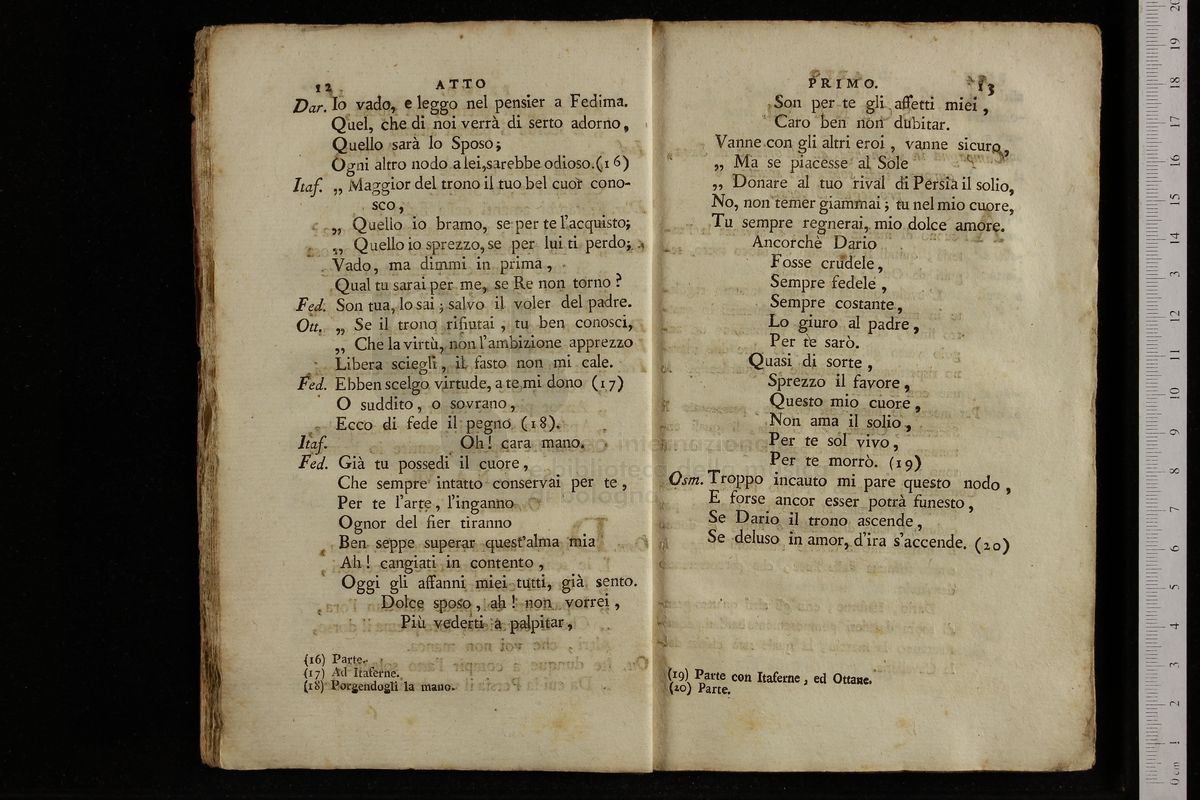 12 ATTO
Dar. Io vado, e leggo nel pensier a Fedima.
Quel, che di noi verrà di serto adorno,
Quello sarà lo Sposo;
Ogni altro nodo a lei, sarebbe odioso. (16)
Itaf. „ Maggior del trono il tuo bel cuor cono-
sco,
„ Quello io bramo, se per te l'acquisto;
„ Quello io sprezzo, se per lui ti perdo;
Vado, ma dimmi in prima,
Qual tu sarai per me, se Re non torno?
Fed. Son tua, lo sai; salvo il voler del padre.
Ott. „ Se il trono rifiutai, tu ben conosci,
„ Che la virtù, non l'ambizione apprezzo
Libera sciegli, il fasto non mi cale.
Fed. Ebben scelgo virtude, a te mi dono (17)
O suddito, o sovrano,
Ecco di fede il pegno (18).
Itaf. Oh! cara mano.
Fed. Già tu possedi il cuore,
Che sempre intatto conservai per te,
Per te l'arte, l'inganno
Ognor del fier tiranno
Ben seppe superar quest'alma mia
Ah! cangiati in contento,
Oggi gli affanni miei tutti, già sento.
Dolce sposo, ah! non vorrei,
Più vederti a palpitar,
(16) Parte.
(17) Ad Itaferne.
(18) Porgendogli la mano.
PRIMO. 13
Son per te gli affetti miei,
Caro ben non dubitar.
Vanne con gli altri eroi, vanne sicuro,
„ Ma se piacesse al Sole
„ Donare al tuo rival di Persia il solio,
No, non temer giammai; tu nel mio cuore,
Tu sempre regnerai, mio dolce amore.
Ancorchè Dario
Fosse crudele,
Sempre fedele,
Sempre costante,
Lo giuro al padre,
Per te sarò.
Quasi di sorte,
Sprezzo il favore,
Questo mio cuore,
Non ama il solio,
Per te sol vivo,
Per te morrò. (19)
Osm. Troppo incauto mi pare questo nodo,
E forse ancor esser potrà funesto,
Se Dario il trono ascende,
Se deluso in amor, d'ira s'accende. (20)
(19) Parte con Itaferne, ed Ottane.
(20) Parte.